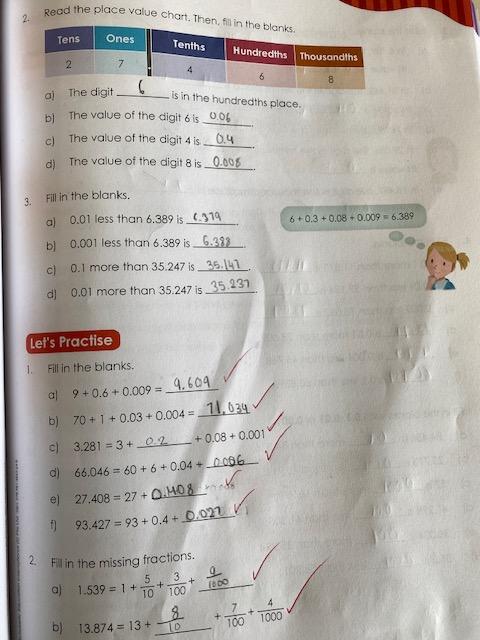 2. Read the place value chart. Then, fill in the blanks.
Tens Ones Tenths Hundredths Thousandths
2 7 4 6 8
a) The digit 6 is in the hundredths place.
b) The value of the digit 6 is 0.06.
c) The value of the digit 4 is 0.4.
d) The value of the digit 8 is 0.008.
3. Fill in the blanks.
a) 0.01 less than 6.389 is 6.379
6 + 0.3 + 0.08 + 0.009 = 6.389
b) 0.001 less than 6.389 is 6.388
c) 0.1 more than 35.247 is 35.147
d) 0.01 more than 35.247 is 35.237
Let's Practise
1. Fill in the blanks.
a) 9 + 0.6 + 0.009 = 9.609
b) 70 + 1 + 0.03 + 0.004 = 71.034
c) 3.281 = 3 + 0.2 + 0.08 + 0.001
d) 66.046 = 60 + 6 + 0.04 + 0.006
e) 27.408 = 27 + 0.408
f) 93.427 = 93 + 0.4 + 0.027
2. Fill in the missing fractions.
a) 1.539 = 1 + 5/10 + 3/100 + 9/1000
b) 13.874 = 13 + 8/10 + 7/100 + 4/1000